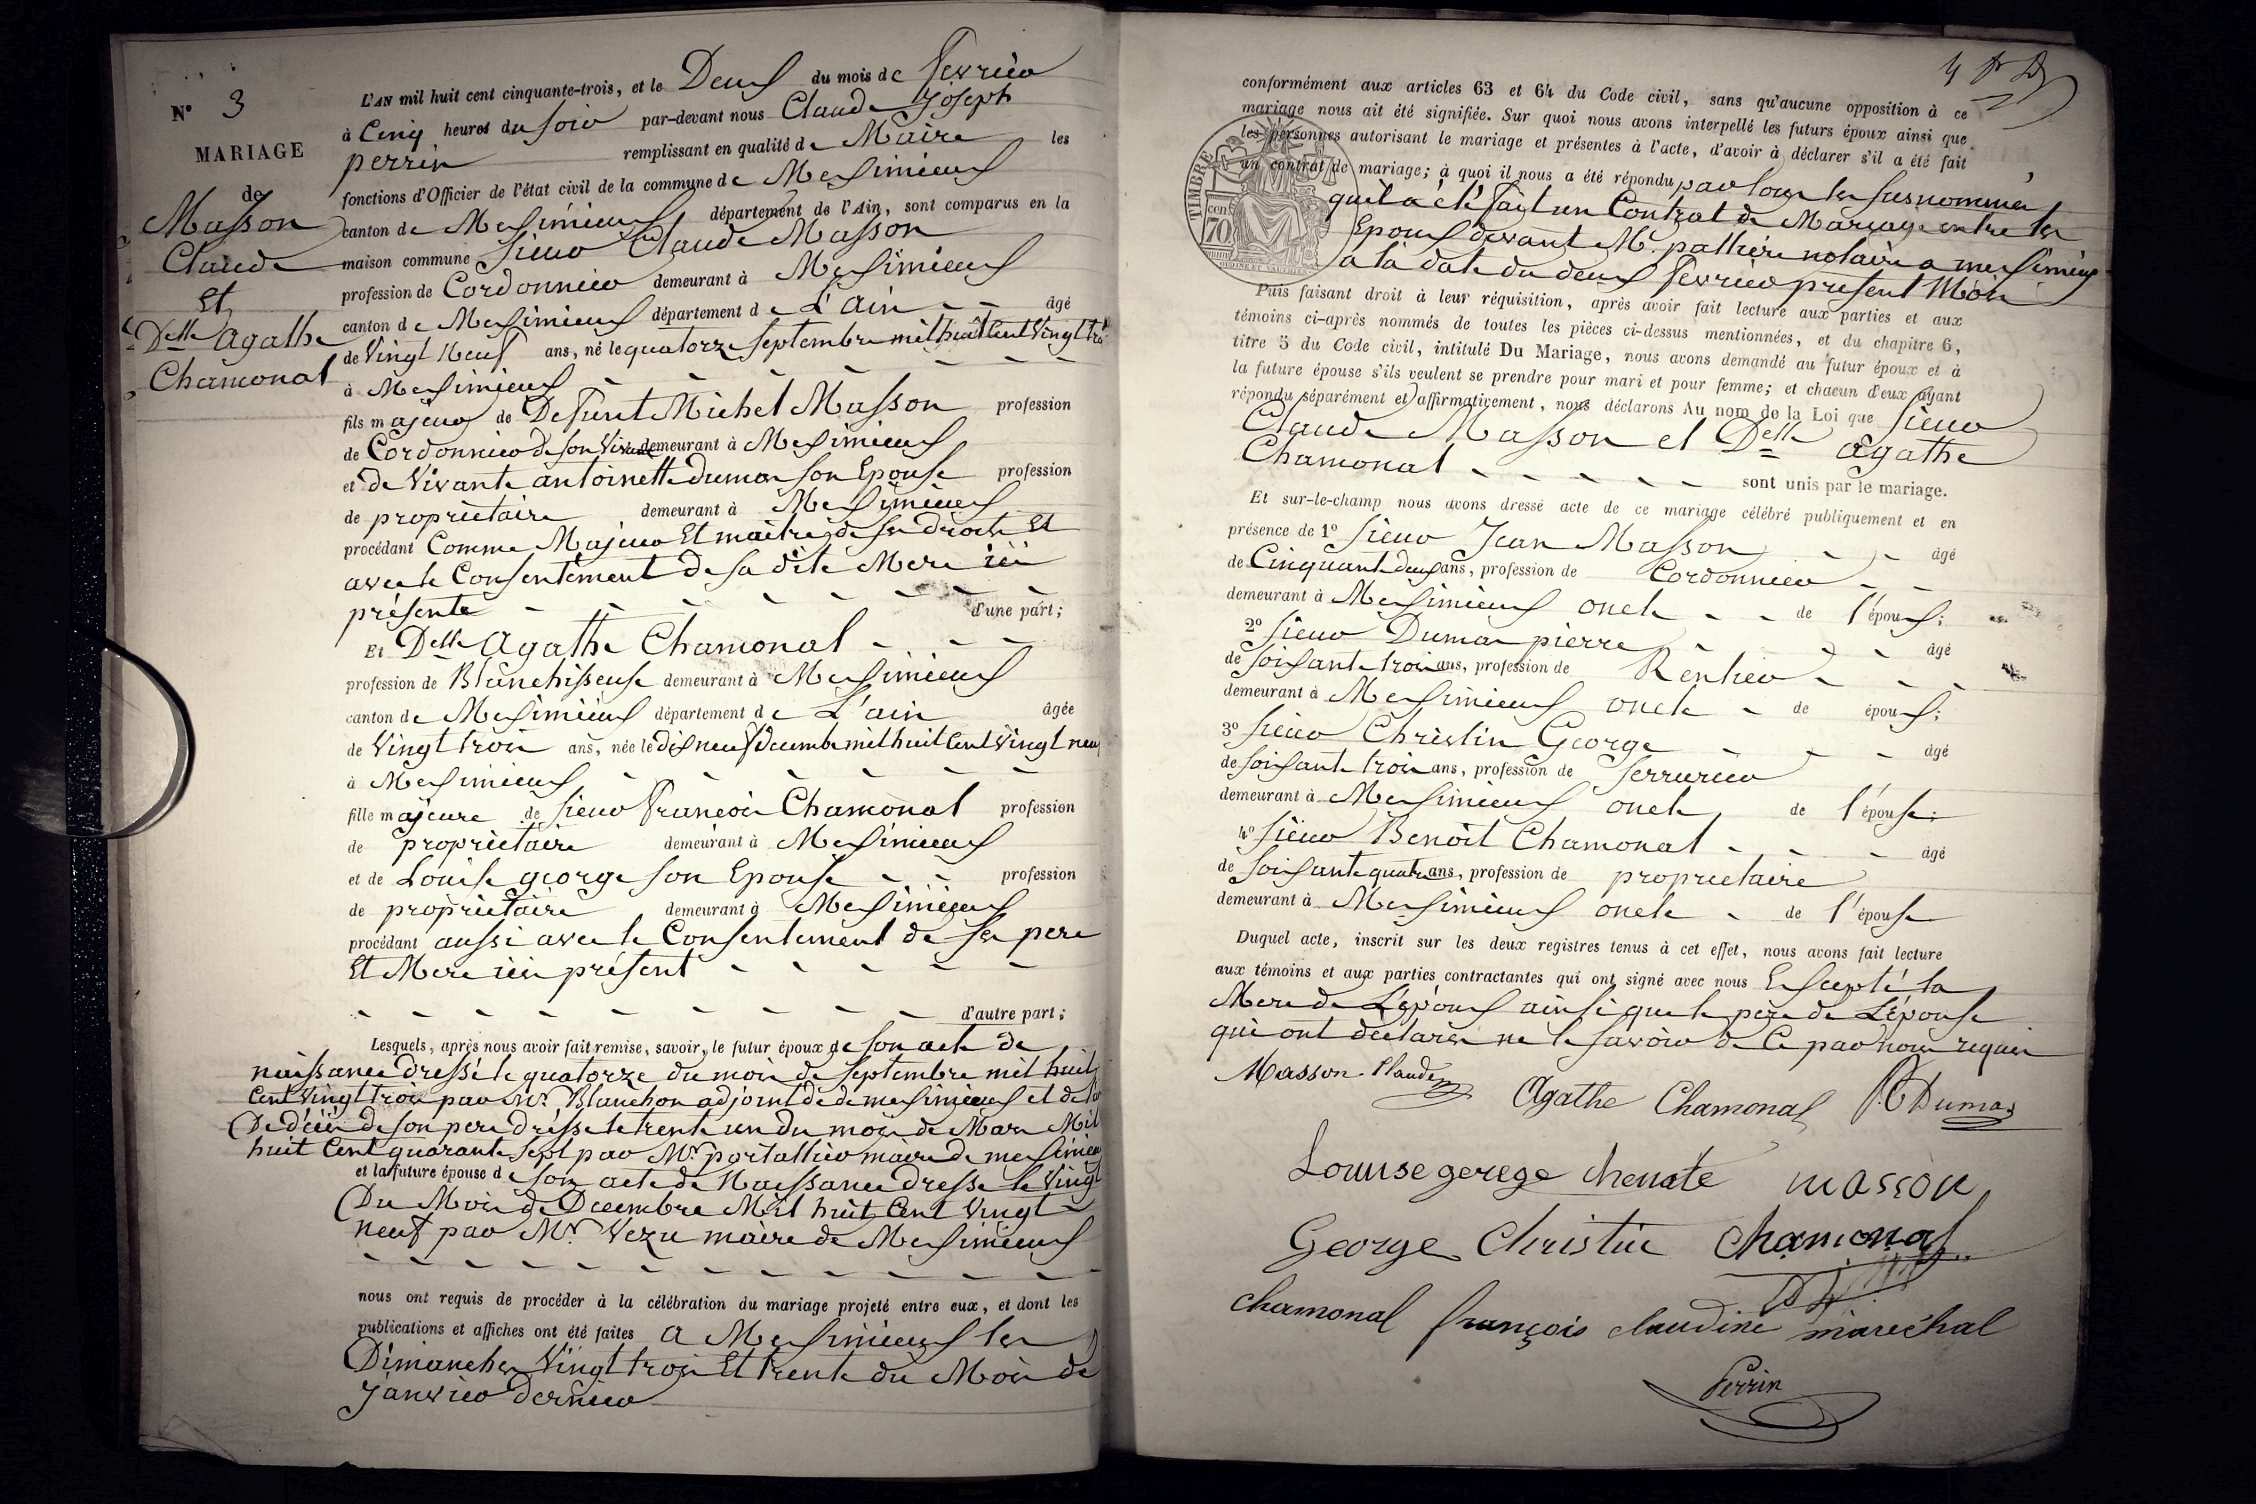 N° 3
MARIAGE
de
Masson
Claude
et
Delle Agathe
Chamonal
L'AN mil huit cent cinquante-trois, et le Deux du mois de fevrier
à Cinq heures du soir par-devant nous Claude Joseph
perrin remplissant en qualité de Maire les
fonctions d'Officier de l'état civil de la commune de Meximieux
canton de Meximieux département de l'Ain, sont comparus en la
maison commune sieur Claude Masson
profession de Cordonnier demeurant à Meximieux
canton de Meximieux département de L'ain - - âgé
de Vingt Neuf ans, né le quatorze septembre mil huit Cent Vingt trois
à Meximieux - - - - - -
fils majeur de Defunt Michel Masson profession
de Cordonnier de son Vivant demeurant à Meximieux
et de Vivante antoinette dumas son Epouse profession
de propriétaire demeurant à Meximieux
procédant Comme Majeur Et maitre de ses droits Et
avec le Consentement de sa dite Mere ici
présente - - - - - - - d'une part;
Et Delle Agathe Chamonal - - -
profession de Blanchisseuse demeurant à Meximieux
canton de Meximieux département de L'ain âgée
de Vingt trois ans, née le dix neuf decembre mil huit Cent Vingt neuf
à Meximieux - - - - - -
fille majeure de sieur françois Chamonal profession
de propriétaire demeurant à Meximieux
et de Louise george son Epouse - - profession
de propriétaire demeurant à Meximieux
procédant aussi avec le Consentement de ses pere
Et Mere ici présent - - - - -
- - - - - - - - - d'autre part;
Lesquels, après nous avoir fait remise, savoir, le futur époux de son acte de
naissance dressé le quatorze du mois de septembre mil huit
Cent Vingt trois par Mr. Blanchon adjoint de de meximieux et de
Décès de son pere dresse le trente un du mois de Mars Mil
huit Cent quarante sept par Mr portallier maire de meximieux
et la future épouse de son acte de Naissance dresse le Vingt
Du Mois de Decembre Mil huit Cent Vingt
neuf par Mr. Vezu maire de Meximieux
- - - - - - - - - - - - -
nous ont requis de procéder à la célébration du mariage projeté entre eux, et dont les
publications et affiches ont été faites a Meximieux les
Dimanches Vingt trois Et trente du Mois de
Janvier dernier
conformément aux articles 63 et 64 du Code civil, sans qu'aucune opposition à ce
mariage nous ait été signifiée. Sur quoi nous avons interpellé les futurs époux ainsi que
les personnes autorisant le mariage et présentes à l'acte, d'avoir à déclarer s'il a été fait
un contrat de mariage; à quoi il nous a été répondu par tous les susnommés
quil a été fait un Contrat de Mariage entre les
Epoux devant Me. pallière notaire a meximieux
a la date du deux fevrier présent Mois
TIMBRE
70
Puis faisant droit à leur réquisition, après avoir fait lecture aux parties et aux
témoins ci-après nommés de toutes les pièces ci-dessus mentionnées, et du chapitre 6,
titre 5 du Code civil, intitulé Du Mariage, nous avons demandé au futur époux et à
la future épouse s'ils veulent se prendre pour mari et pour femme; et chacun d'eux ayant
répondu séparément et affirmativement, nous déclarons Au nom de la Loi que sieur
Claude Masson et Delle Agathe
Chamonal - - - - - sont unis par le mariage.
Et sur-le-champ nous avons dressé acte de ce mariage célébré publiquement et en
présence de 1° sieur Jean Masson - - âgé
de Cinquante deux ans, profession de Cordonnier - -
demeurant à Meximieux oncle - - de l'époux;
2° sieur Dumas pierre - - - âgé
de soixante trois ans, profession de Rentier - - -
demeurant à Meximieux oncle - de époux;
3° sieur Christin George - - - âgé
de soixante trois ans, profession de serrurier
demeurant à Meximieux oncle de l'épouse;
4° sieur Benoit Chamonal - - - âgé
de soixante quatre ans, profession de propriétaire
demeurant à Meximieux oncle - de l'épouse
Duquel acte, inscrit sur les deux registres tenus à cet effet, nous avons fait lecture
aux témoins et aux parties contractantes qui ont signé avec nous Excepté la
Mere de L'époux ainsi que le pere de L'épouse
qui ont déclaré ne le savoir de Ce par nous requis
Masson Claude Agathe Chamonal P Dumas
Louise gerege masson
George Christin Chamonal
chamonal françois claudine maréchal
Perrin